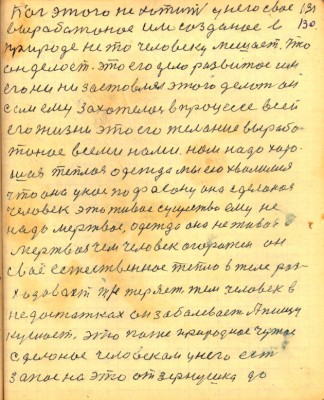 Бог этого не хотит у него свое 131
выработаное им созданое в 130.
природе не то человеку мешает. Што
он делоет. это его дело развитое им
его ни не заставлял этого делать он
сам ему захотелся в процессе всей
его жизни это его желание вырабо-
таное всеми нами. нам надо харо-
шая теплая одежда мы ею хвалимся
что она у нас по фасону она сделаная
человек это живое существо ему не
надо мертвое, одежда она не живая
мертвая чем человек огорожен он
своё естественное тепло в теле раз-
теряет тем человек в
недостатках он заболевает. А пищу
кушает. это тоже природное чужое
сделоное человеком у него ест
запас на это от зернушка до